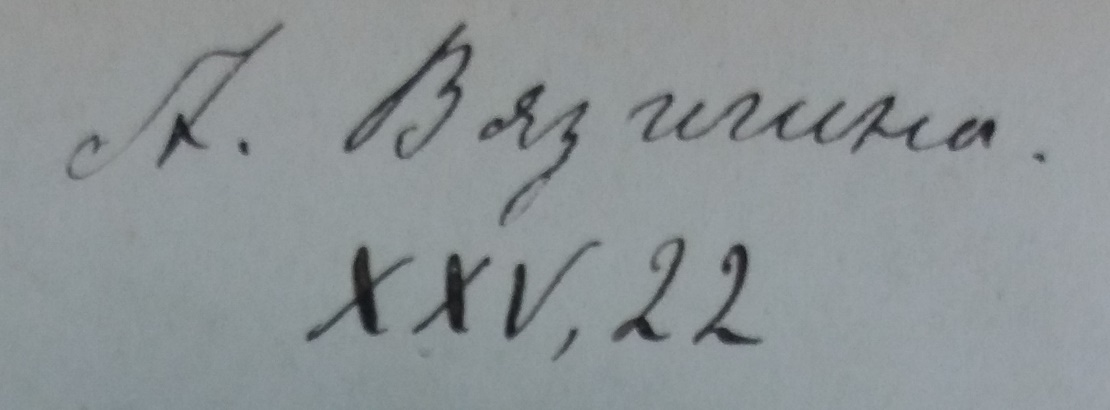 А. Вязигина.
XXV, 22